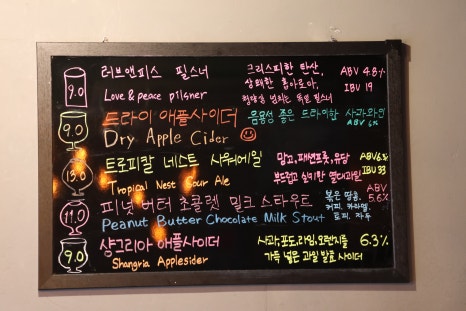 9.0 러브앤피스 필스너 크리스피한 탄산, ABV 4.8%
Love & peace pilsner 상쾌한 홉아로마, IBU 19
청량감 넘치는 독일 필스너
9.0 드라이 애플사이더 음용성 좋은 드라이한 사과와인
Dry Apple Cider ABV 6%
13.0 트로피칼 네스트 사워에일 망고, 패션프룻, 유당
Tropical Nest Sour Ale 부드럽고 열대과일 IBU 33
11.0 피넛 버터 초콜렛 밀크 스타우트 볶은 땅콩, ABV 5.6%
Peanut Butter Chocolate Milk Stout 커피, 카라멜,
9.0 샹그리아 애플사이더 사과, 포도, 라임, 오렌지를 6.3%
Shangria Applesider 가득 넣은 과일 발효 사이더